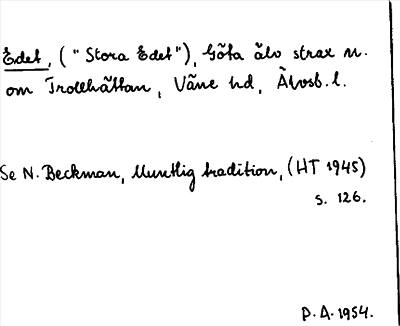 Edet, ("Stora Edet"), Göta älv strax n.
om Trollhättan, Väne hd, Älvsb. l.
Se N. Beckman, Muntlig tradition, (HT 1945)
s. 126.
P.A. 1954.